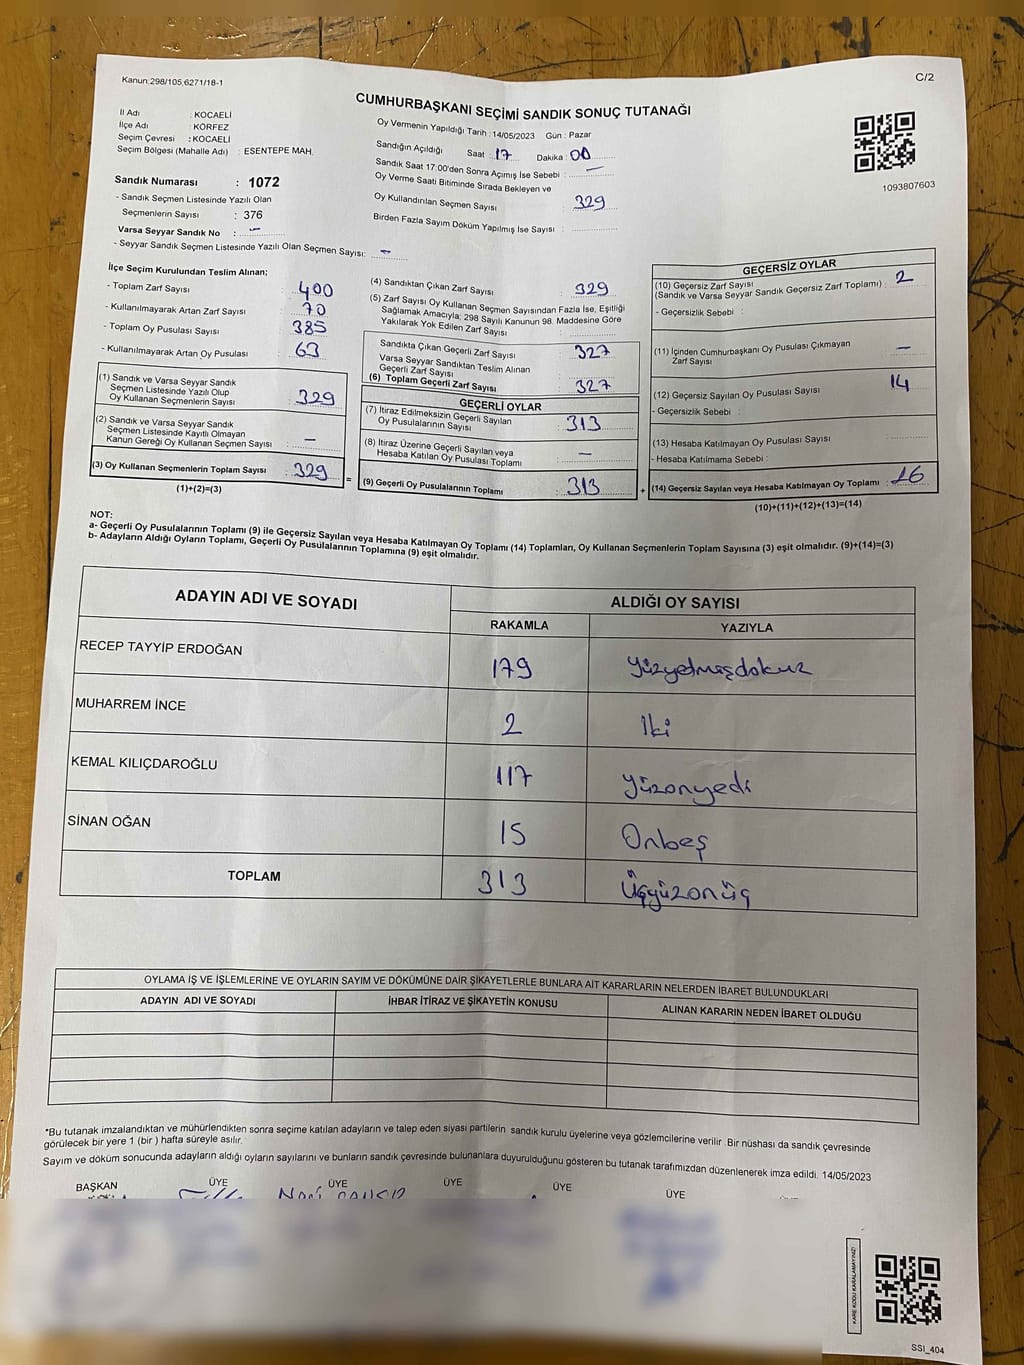 Kanun.298/105,6271/18-1
C/2
CUMHURBAŞKANI SEÇİMİ SANDIK SONUÇ TUTANAĞI
İl Adı : KOCAELİ
İlçe Adı : KÖRFEZ
Seçim Çevresi : KOCAELİ
Seçim Bölgesi (Mahalle Adı) : ESENTEPE MAH.
Sandık Numarası : 1072
- Sandık Seçmen Listesinde Yazılı Olan
Seçmenlerin Sayısı : 376
Varsa Seyyar Sandık No : -
- Seyyar Sandık Seçmen Listesinde Yazılı Olan Seçmen Sayısı: -
Oy Vermenin Yapıldığı Tarih :14/05/2023 Gün : Pazar
Sandığın Açıldığı Saat : 17 Dakika : 00
Sandık Saat 17:00'den Sonra Açımış İse Sebebi : -
Oy Verme Saati Bitiminde Sırada Bekleyen ve
Oy Kullandırılan Seçmen Sayısı : 329
Birden Fazla Sayım Döküm Yapılmış İse Sayısı :
1093807603
İlçe Seçim Kurulundan Teslim Alınan;
- Toplam Zarf Sayısı : 400
- Kullanılmayarak Artan Zarf Sayısı : 70
- Toplam Oy Pusulası Sayısı : 385
- Kullanılmayarak Artan Oy Pusulası : 63
(1) Sandık ve Varsa Seyyar Sandık
Seçmen Listesinde Yazılı Olup
Oy Kullanan Seçmenlerin Sayısı : 329
(2) Sandık ve Varsa Seyyar Sandık
Seçmen Listesinde Kayıtlı Olmayan
Kanun Gereği Oy Kullanan Seçmen Sayısı : -
(3) Oy Kullanan Seçmenlerin Toplam Sayısı : 329
(1)+(2)=(3)
=
(4) Sandıktan Çıkan Zarf Sayısı : 329
(5) Zarf Sayısı Oy Kullanan Seçmen Sayısından Fazla İse, Eşitliği
Sağlamak Amacıyla; 298 Sayılı Kanunun 98. Maddesine Göre
Yakılarak Yok Edilen Zarf Sayısı :
Sandıkta Çıkan Geçerli Zarf Sayısı : 327
Varsa Seyyar Sandıktan Teslim Alınan
Geçerli Zarf Sayısı :
(6) Toplam Geçerli Zarf Sayısı : 327
GEÇERLİ OYLAR
(7) İtiraz Edilmeksizin Geçerli Sayılan
Oy Pusulalarının Sayısı : 313
(8) İtiraz Üzerine Geçerli Sayılan veya
Hesaba Katılan Oy Pusulası Toplamı : -
(9) Geçerli Oy Pusulalarının Toplamı : 313
+
GEÇERSİZ OYLAR
(10) Geçersiz Zarf Sayısı
(Sandık ve Varsa Seyyar Sandık Geçersiz Zarf Toplamı) : 2
- Geçersizlik Sebebi :
(11) İçinden Cumhurbaşkanı Oy Pusulası Çıkmayan
Zarf Sayısı : -
(12) Geçersiz Sayılan Oy Pusulası Sayısı : 14
- Geçersizlik Sebebi :
(13) Hesaba Katılmayan Oy Pusulası Sayısı :
- Hesaba Katılmama Sebebi :
(14) Geçersiz Sayılan veya Hesaba Katılmayan Oy Toplamı : 16
(10)+(11)+(12)+(13)=(14)
NOT:
a- Geçerli Oy Pusulalarının Toplamı (9) ile Geçersiz Sayılan veya Hesaba Katılmayan Oy Toplamı (14) Toplamları, Oy Kullanan Seçmenlerin Toplam Sayısına (3) eşit olmalıdır. (9)+(14)=(3)
b- Adayların Aldığı Oyların Toplamı, Geçerli Oy Pusulalarının Toplamına (9) eşit olmalıdır.
ADAYIN ADI VE SOYADI
ALDIĞI OY SAYISI
RAKAMLA YAZIYLA
RECEP TAYYİP ERDOĞAN 179 Yüzyetmişdokuz
MUHARREM İNCE 2 İki
KEMAL KILIÇDAROĞLU 117 Yüzonyedi
SİNAN OĞAN 15 Onbeş
TOPLAM 313 Üçyüzonüç
OYLAMA İŞ VE İŞLEMLERİNE VE OYLARIN SAYIM VE DÖKÜMÜNE DAİR ŞİKAYETLERLE BUNLARA AİT KARARLARIN NELERDEN İBARET BULUNDUKLARI
ADAYIN ADI VE SOYADI İHBAR İTİRAZ VE ŞİKAYETİN KONUSU ALINAN KARARIN NEDEN İBARET OLDUĞU
*Bu tutanak imzalandıktan ve mühürlendikten sonra seçime katılan adayların ve talep eden siyasi partilerin sandık kurulu üyelerine veya gözlemcilerine verilir. Bir nüshası da sandık çevresinde
görülecek bir yere 1 (bir ) hafta süreyle asılır.
Sayım ve döküm sonucunda adayların aldığı oyların sayılarını ve bunların sandık çevresinde bulunanlara duyurulduğunu gösteren bu tutanak tarafımızdan düzenlenerek imza edildi. 14/05/2023
BAŞKAN ÜYE ÜYE ÜYE ÜYE ÜYE ÜYE
KARE KODU KARALAMAYINIZ!
SSI_404